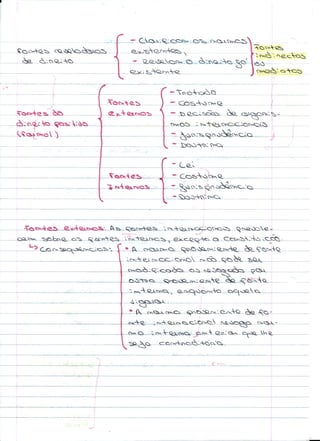 - Clarificam as normas
existentes,
- Revelam o direito já
existente
Fontes reveladoras
de direito
Fontes
indirectas
ou
mediatas
Fontes do
direito positivo
(formal)
Fontes
externas
- Tratado
- Costume
- Decisões de organis-
mos internacionais
- Jurisprudência
- Doutrina
Fontes
Internas
- Lei
- Costume
- Jurisprudência
- Doutrina
Fontes externas: As fontes internacionais prevale-
cem sobre as fontes internas, excepto a Constituição.
↳ Consequências:
* A norma proveniente de fonte
internacional não pode ser
modificada ou revogada por
outra proveniente de fonte
interna, enquanto aquela
vigorar
* A norma proveniente de fo-
nte internacional revoga nor-
ma interna anterior que lhe
seja contraditória.